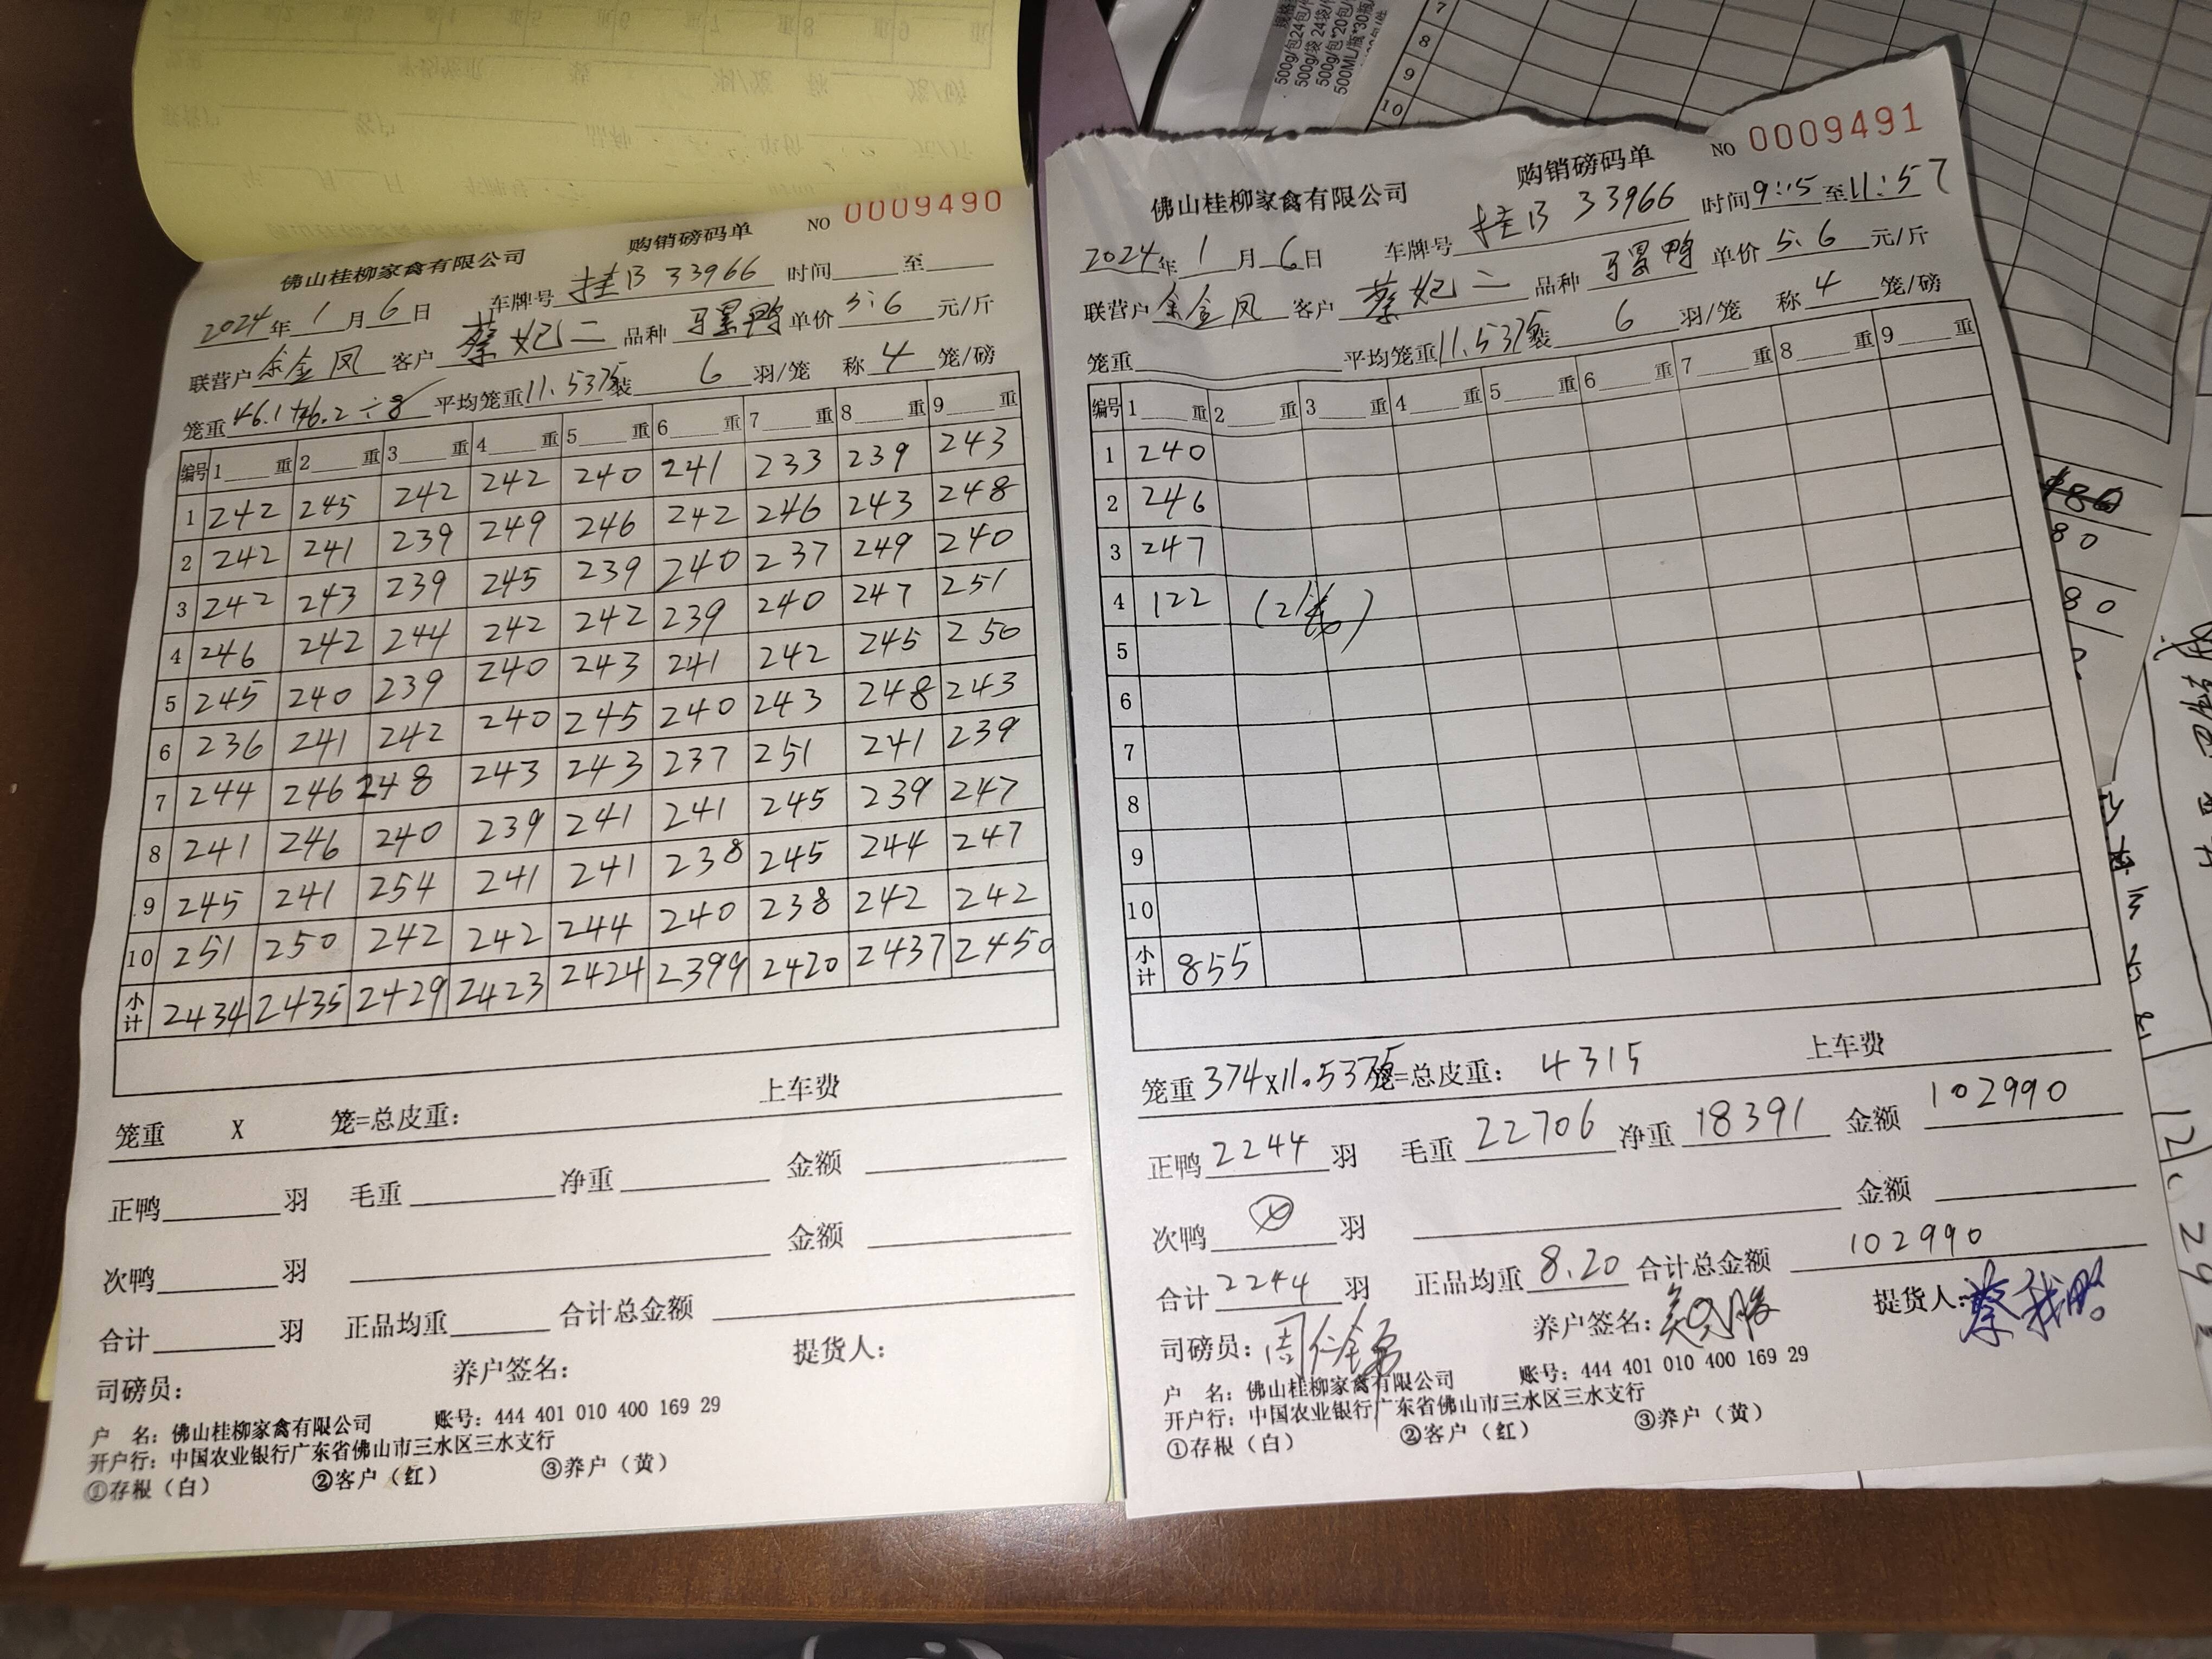 佛山桂柳家禽有限公司 购销磅码单 NO 0009490
2024年1月6日 车牌号 桂B 33966 时间 至
联营户 余金凤 客户 蔡妃二 品种 单价 5.6 元/斤
笼重 46.1+46.2÷8 平均笼重 11.5375 装 6 羽/笼 称 4 笼/磅
编号 1 重 2 重 3 重 4 重 5 重 6 重 7 重 8 重 9 重
1 242 245 242 242 240 241 233 239 243
2 242 241 239 249 246 242 246 243 248
3 242 243 239 245 239 240 237 249 240
4 246 242 244 242 242 239 240 247 251
5 245 240 239 240 243 241 242 245 250
6 236 241 242 240 245 240 243 248 243
7 244 246 248 243 243 237 251 241 239
8 241 246 240 239 241 241 245 239 247
9 245 241 254 241 241 238 245 244 247
10 251 250 242 242 244 240 238 242 242
小计 2434 2435 2429 2423 2424 2399 2420 2437 2450
笼重 X 笼=总皮重: 上车费
正鸭 羽 毛重 净重 金额
次鸭 羽 金额
合计 羽 正品均重 合计总金额
司磅员: 养户签名: 提货人:
户 名: 佛山桂柳家禽有限公司 账号: 444 401 010 400 169 29
开户行: 中国农业银行广东省佛山市三水区三水支行
①存根（白） ②客户（红） ③养户（黄）
佛山桂柳家禽有限公司 购销磅码单 NO 0009491
2024年1月6日 车牌号 桂B 33966 时间 9:15 至 11:57
联营户 余金凤 客户 蔡妃二 品种 单价 5.6 元/斤
笼重 平均笼重 11.5375 装 6 羽/笼 称 4 笼/磅
编号 1 重 2 重 3 重 4 重 5 重 6 重 7 重 8 重 9 重
1 240
2 246
3 247
4 122 (2笼)
5
6
7
8
9
10
小计 855
笼重 374x11.5375 笼=总皮重: 4315 上车费
正鸭 2244 羽 毛重 22706 净重 18391 金额 102990
次鸭 羽 金额
合计 2244 羽 正品均重 8.20 合计总金额 102990
司磅员: 养户签名: 提货人:
户 名: 佛山桂柳家禽有限公司 账号: 444 401 010 400 169 29
开户行: 中国农业银行广东省佛山市三水区三水支行
①存根（白） ②客户（红） ③养户（黄）
500g/包24包/
500g/袋 24袋/
500g/包*20包/
500ML/瓶*30瓶/
7
8
9
10
80
80